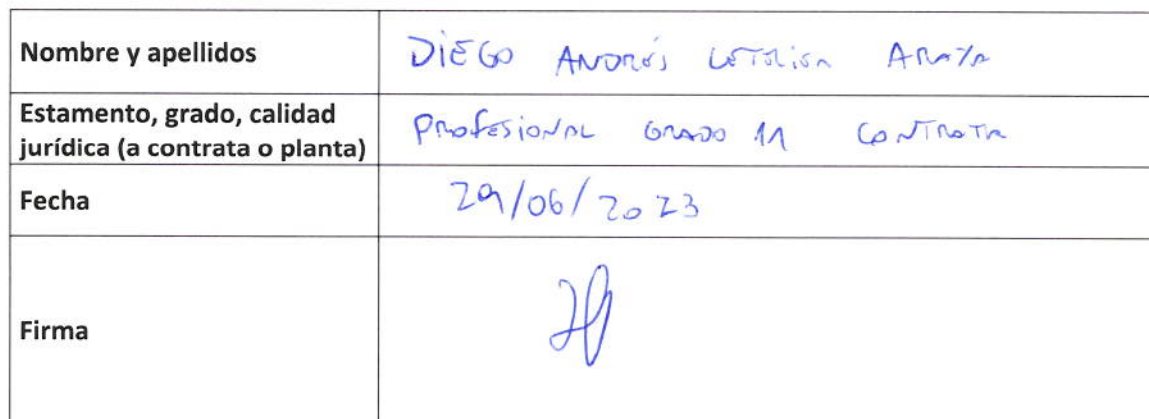 Nombre y apellidos DiEGO ANDRÉS LETELIER ARAYA
Estamento, grado, calidad
jurídica (a contrata o planta) PROFESIONAL GRADO 11 CONTRATA
Fecha 29/06/2023
Firma